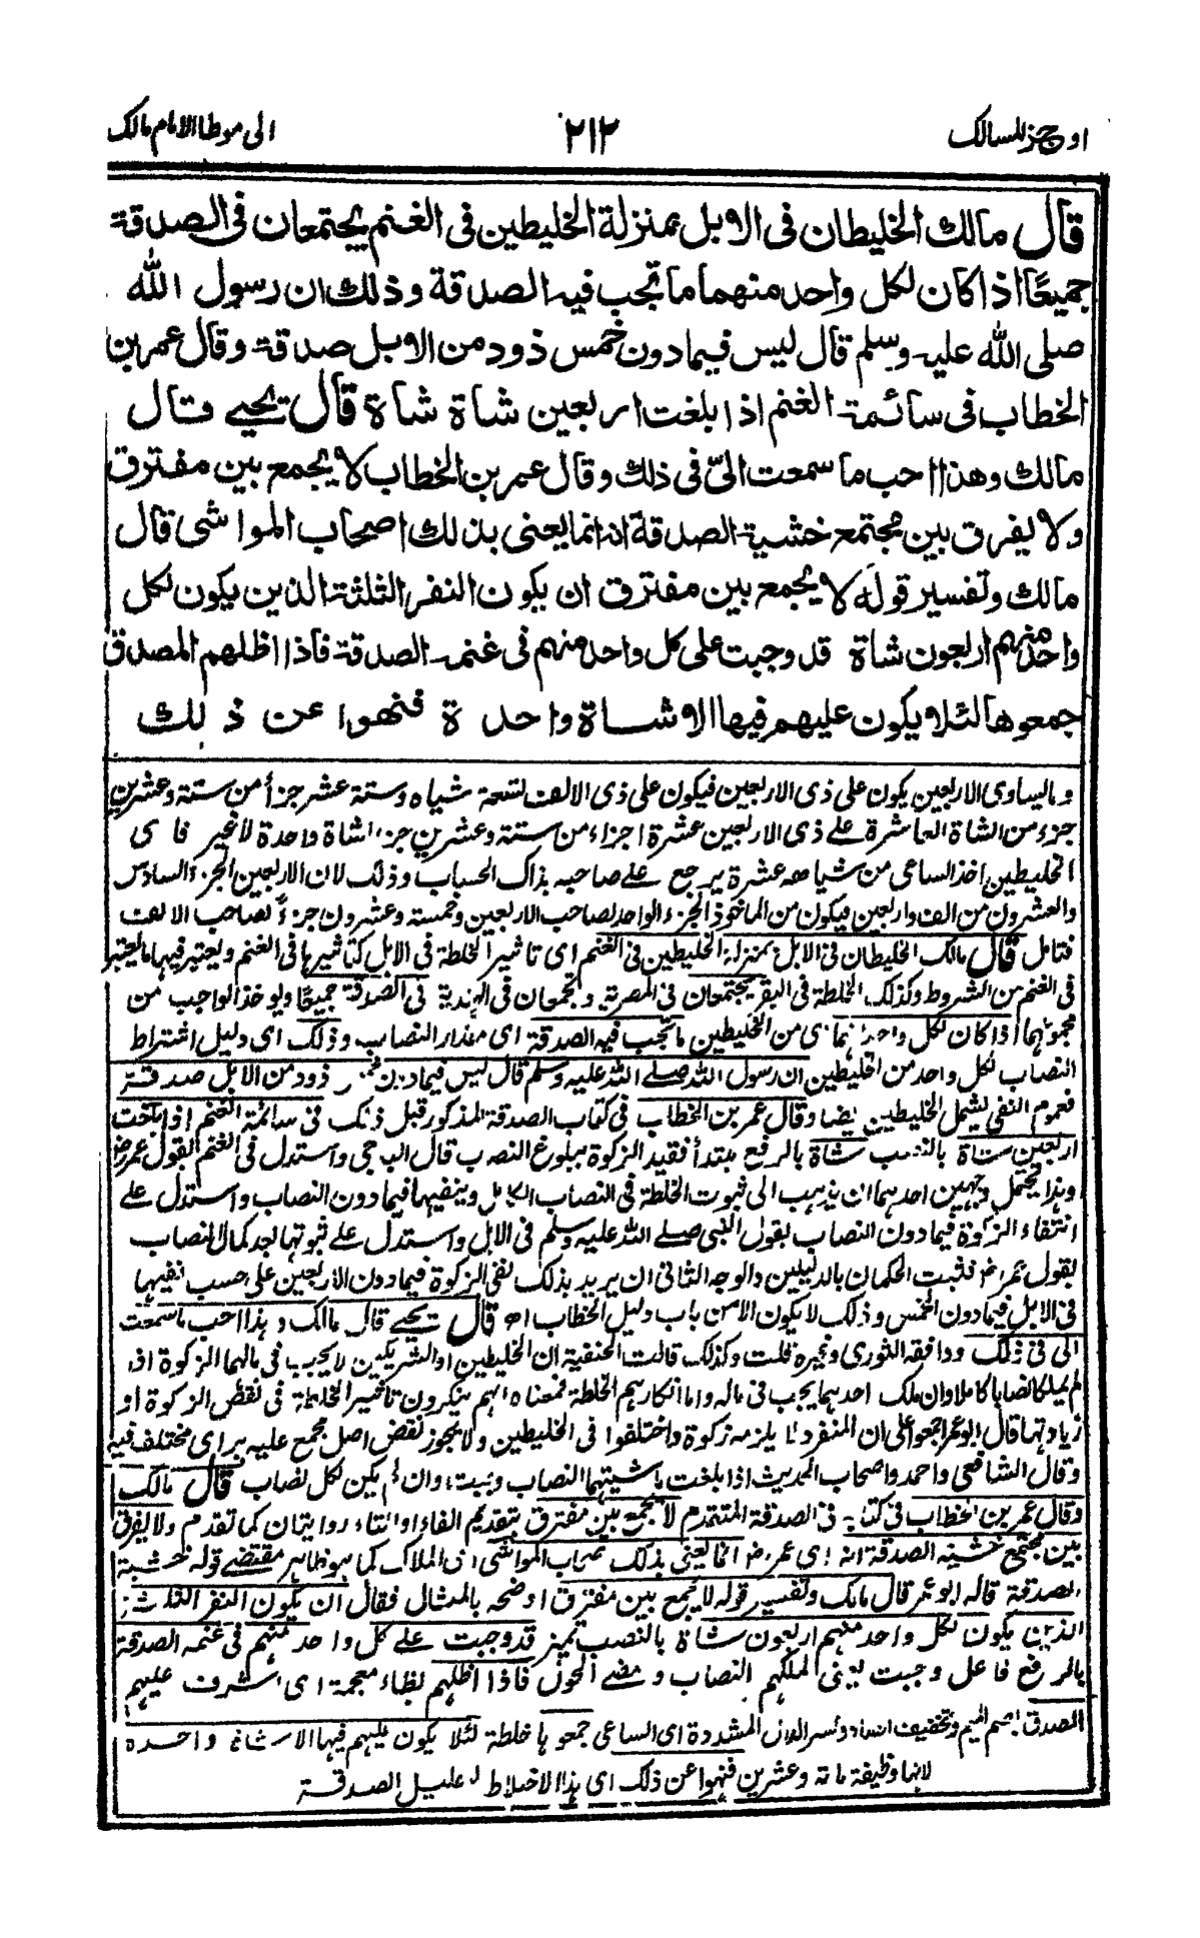 اوجز المسالك
٢١٢
الى موطا الامام مالك
قال مالك الخليطان فى الابل بمنزلة الخليطين فى الغنم يجتمعان فى الصدقة
جميعًا اذا كان لكل واحد منهما ما تجب فيه الصدقة وذلك ان رسول الله
صلى الله عليه وسلم قال ليس فيما دون خمس ذود من الابل صدقة وقال عمر بن
الخطاب فى سائمة الغنم اذا بلغت اربعين شاة شاة قال يحيے قال
مالك وهذا احب ما سمعت الىّ فى ذلك وقال عمر بن الخطاب لا يجمع بين مفترق
ولا يفرق بين مجتمع خشية الصدقة انه انما يعنى بذلك اصحاب المواشى قال
مالك وتفسير قوله لا يجمع بين مفترق ان يكون النفر الثلثة الذين يكون لكل
واحد منهم اربعون شاة قد وجبت على كل واحد منهم فى غنمه الصدقة فاذا اظلهم المصدق
جمعوها لئلا يكون عليهم فيها الا شاة واحدة فنهوا عن ذلك
وما يساوى الاربعين يكون على ذى الاربعين فيكون على ذى الالف تسعة شياه وستة عشر جزأ من ستة وعشرين
جزء من الشاة العاشرة علے ذى الاربعين عشرة اجزاء من ستة وعشرين جزء شاة واحدة لا غير فاى
الخليطين اخذ الساعى من شياهه عشرة يرجع علے صاحبه بذاك الحساب وذلك لان الاربعين الجزء السادس
والعشرون من الف واربعين فيكون من الماخوذ الجزء الواحد لصاحب الاربعين وخمسة وعشرون جزءً لصاحب الالف
فتامل قال مالك الخليطان فى الابل بمنزلة الخليطين فى الغنم اى تاثير الخلطة فى الابل كتاثيرها فى الغنم ويعتبر فيها ما يعتبر
فى الغنم من الشروط وكذلك الخلطة فى البقر يجتمعان فى المصرية ويجمعان فى الهندية فى الصدقة جميعًا ويوخذ الواجب من
مجموعهما اذا كان لكل واحد منهما اى من الخليطين ما تجب فيه الصدقة اى مقدار النصاب وذلك اى دليل اشتراط
النصاب لكل واحد من الخليطين ان رسول الله صلے الله عليه وسلم قال ليس فيما دون خمس ذود من الابل صدقة
فعموم النفى يشمل الخليطين ايضا وقال عمر بن الخطاب فى كتاب الصدقة المذكور قبل ذلك فى سائمة الغنم اذا بلغت
اربعين شاة بالنصب شاة بالرفع مبتدأ فقيد الزكوة ببلوغ النصب قال الباجى واستدل فى الغنم بقول عمر رض
وهذا يحتمل وجهين احدهما ان يذهب الى ثبوت الخلطة فى النصاب الكامل وينفيها فيما دون النصاب واستدل علے
انتفاء الزكوة فيما دون النصاب بقول النبى صلے الله عليه وسلم فى الابل واستدل علے ثبوتها بعد كمال النصاب
بقول عمر رض فثبت الحكمان بالدليلين والوجه الثانى ان يريد بذلك نفى الزكوة فيما دون الاربعين على حسب نفيها
فى الابل فيما دون الخمس وذلك لا يكون الا من باب دليل الخطاب اھ قال يحيے قال مالك وهذا احب ما سمعت
الى فى ذلك ووافقه الثورى وغيره قلت وكذلك قالت الحنفية ان الخليطين او الشريكين لا يجب فى مالهما الزكوة اذا
لم يملكا نصابا كاملا وان ملك احدهما يجب فى ماله واما انكارهم الخلطة فمعناه انهم ينكرون تاثير الخلطة فى نقص الزكوة او
زيادتها قال ابو عمر اجمعوا على ان المنفرد لا يلزمه زكوة واختلفوا فى الخليطين ولا يجوز نقض اصل مجمع عليه براى مختلف فيه
وقال الشافعى واحمد واصحاب الحديث اذا بلغت ماشيتهما النصاب وجبت وان لم يكن لكل نصاب قال مالك
وقال عمر بن الخطاب فى كتابه فى الصدقة المتقدم لا يجمع بين مفترق بتقديم الفاء او التاء روايتان كما تقدم ولا يفرق
بين مجتمع خشية الصدقة انه اى عمر رض انما يعنى بذلك اصحاب المواشى اى الملاك كما هو ظاهر مقتضے قوله خشية
الصدقة قاله ابو عمر قال مالك وتفسير قوله لا يجمع بين مفترق اوضحه بالمثال فقال ان يكون النفر الثلاثة
الذين يكون لكل واحد منهم اربعون شاة بالنصب تميز قد وجبت علے كل واحد منهم فى غنمه الصدقة
بالرفع فاعل وجبت يعنى لملكهم النصاب ومضے الحول فاذا اظلهم بظاء معجمة اى اشرف عليهم
المصدق بضم الميم وتخفيف الصاد وكسر الدال المشددة اى الساعى جمعوها خلطة لئلا يكون عليهم فيها الا شاة واحدة
لانها وظيفة مائة وعشرين فنهوا عن ذلك اى هذا الاختلاط لتعليل الصدقة